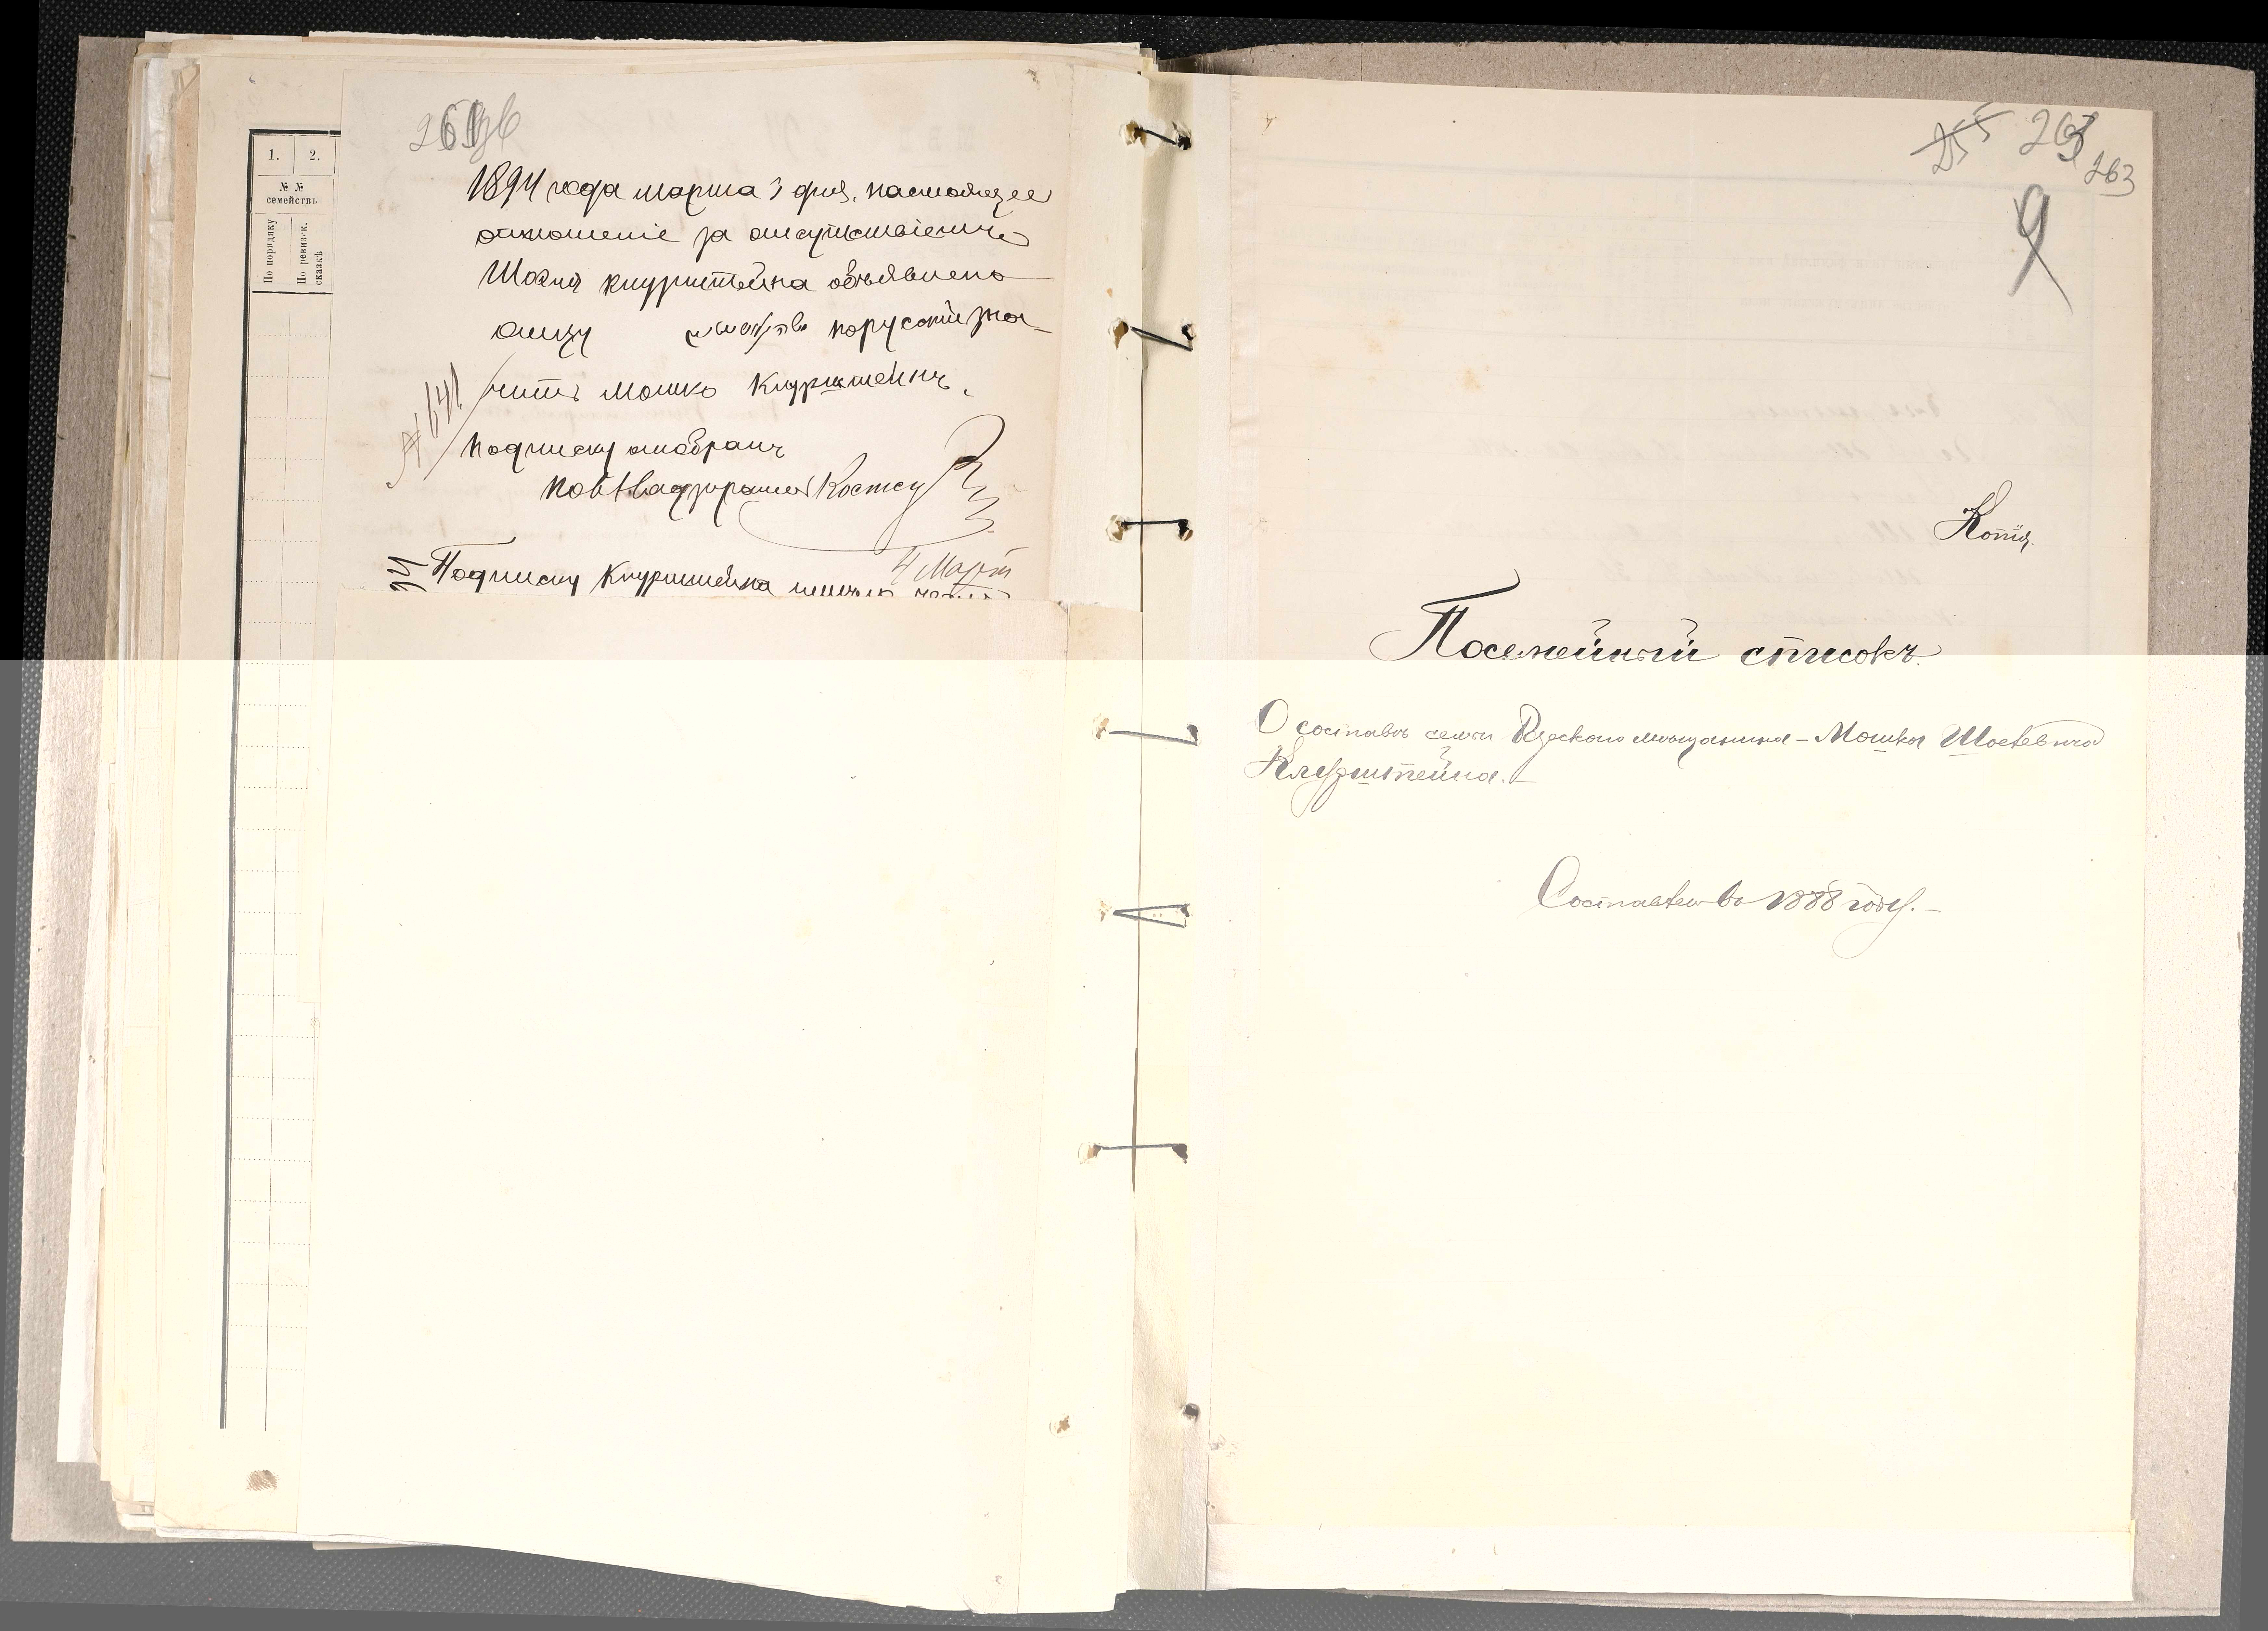 1.
2.
№ №
семействъ
По порядку
По ревизск. сказкѣ
1894 года марта 3 дня, настоящее
отношеніе за отсутствіемъ
Шоеля Кнурштейна объявлено
отцу по русски зна-
читъ Мошко Кнурштейнъ.
№ 641
Подписку отобралъ
Надзиратель
4 Март
Подписку Кнурштейна
255 263
263
9
Копія.
Посемейный списокъ.
О составѣ семьи мѣщанина - Мошка Шоелевича
Кнурштейна. -
Составленъ въ 1888 году. -